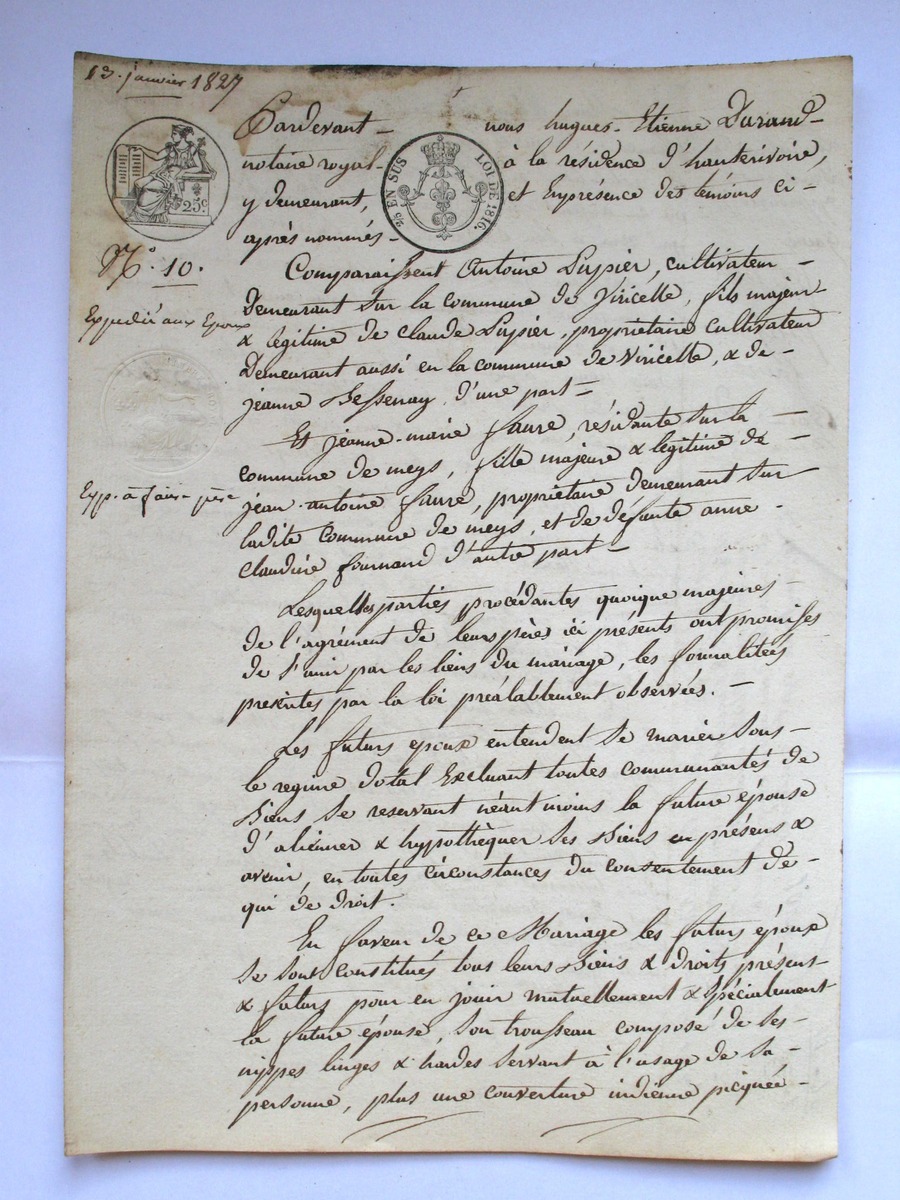 13. janvier 1827
Pardevant - nous hugues-Etienne Durand -
notaire royal - à la résidence d'hauterivoire,
y demeurant, et en présence des temoins ci -
après nommés -
25 EN SUS LOI DE 1816.
25c
N.o 10.
Comparaissent Antoine Dupier, cultivateur -
Expedié aux Epoux
Demeurant sur la commune de Viricelle, fils majeur
& legitime de claude Dupier, propriétaire cultivateur
Demeurant aussi en la commune de Viricelle, & de -
jeanne Bessenay, d'une part -
Et jeanne-marie faure, résidante sur la -
commune de meys, fille majeure & legitime de -
Exp. à faure père
jean-antoine faure, propriétaire demeurant sur
ladite commune de meys, et de defunte anne -
claudine fournand d'autre part -
Lesquelles parties procédantes quoique majeures -
de l'agrément de leurs pères ici présents ont promises
de s'unir par les liens du mariage, les formalitées
prescrites par la loi préalablement observées. -
Les futurs epoux entendent se marier sous -
le regime dotal Excluant toutes communautés de
Biens se reservant néant moins la future épouse
d'aliéner & hypothèquer ses Biens en présens &
avenir, en toutes circonstances du consentement de -
qui de droit.
En faveur de ce Mariage les futurs époux
se sont constitués tous leurs Biens & droits présents
& futurs pour en jouir mutuellement & spécialement
la future épouse, son trousseau composé de ses -
nippes linges & hardes servant à l'usage de sa -
personne, plus une couverture indienne picquée -